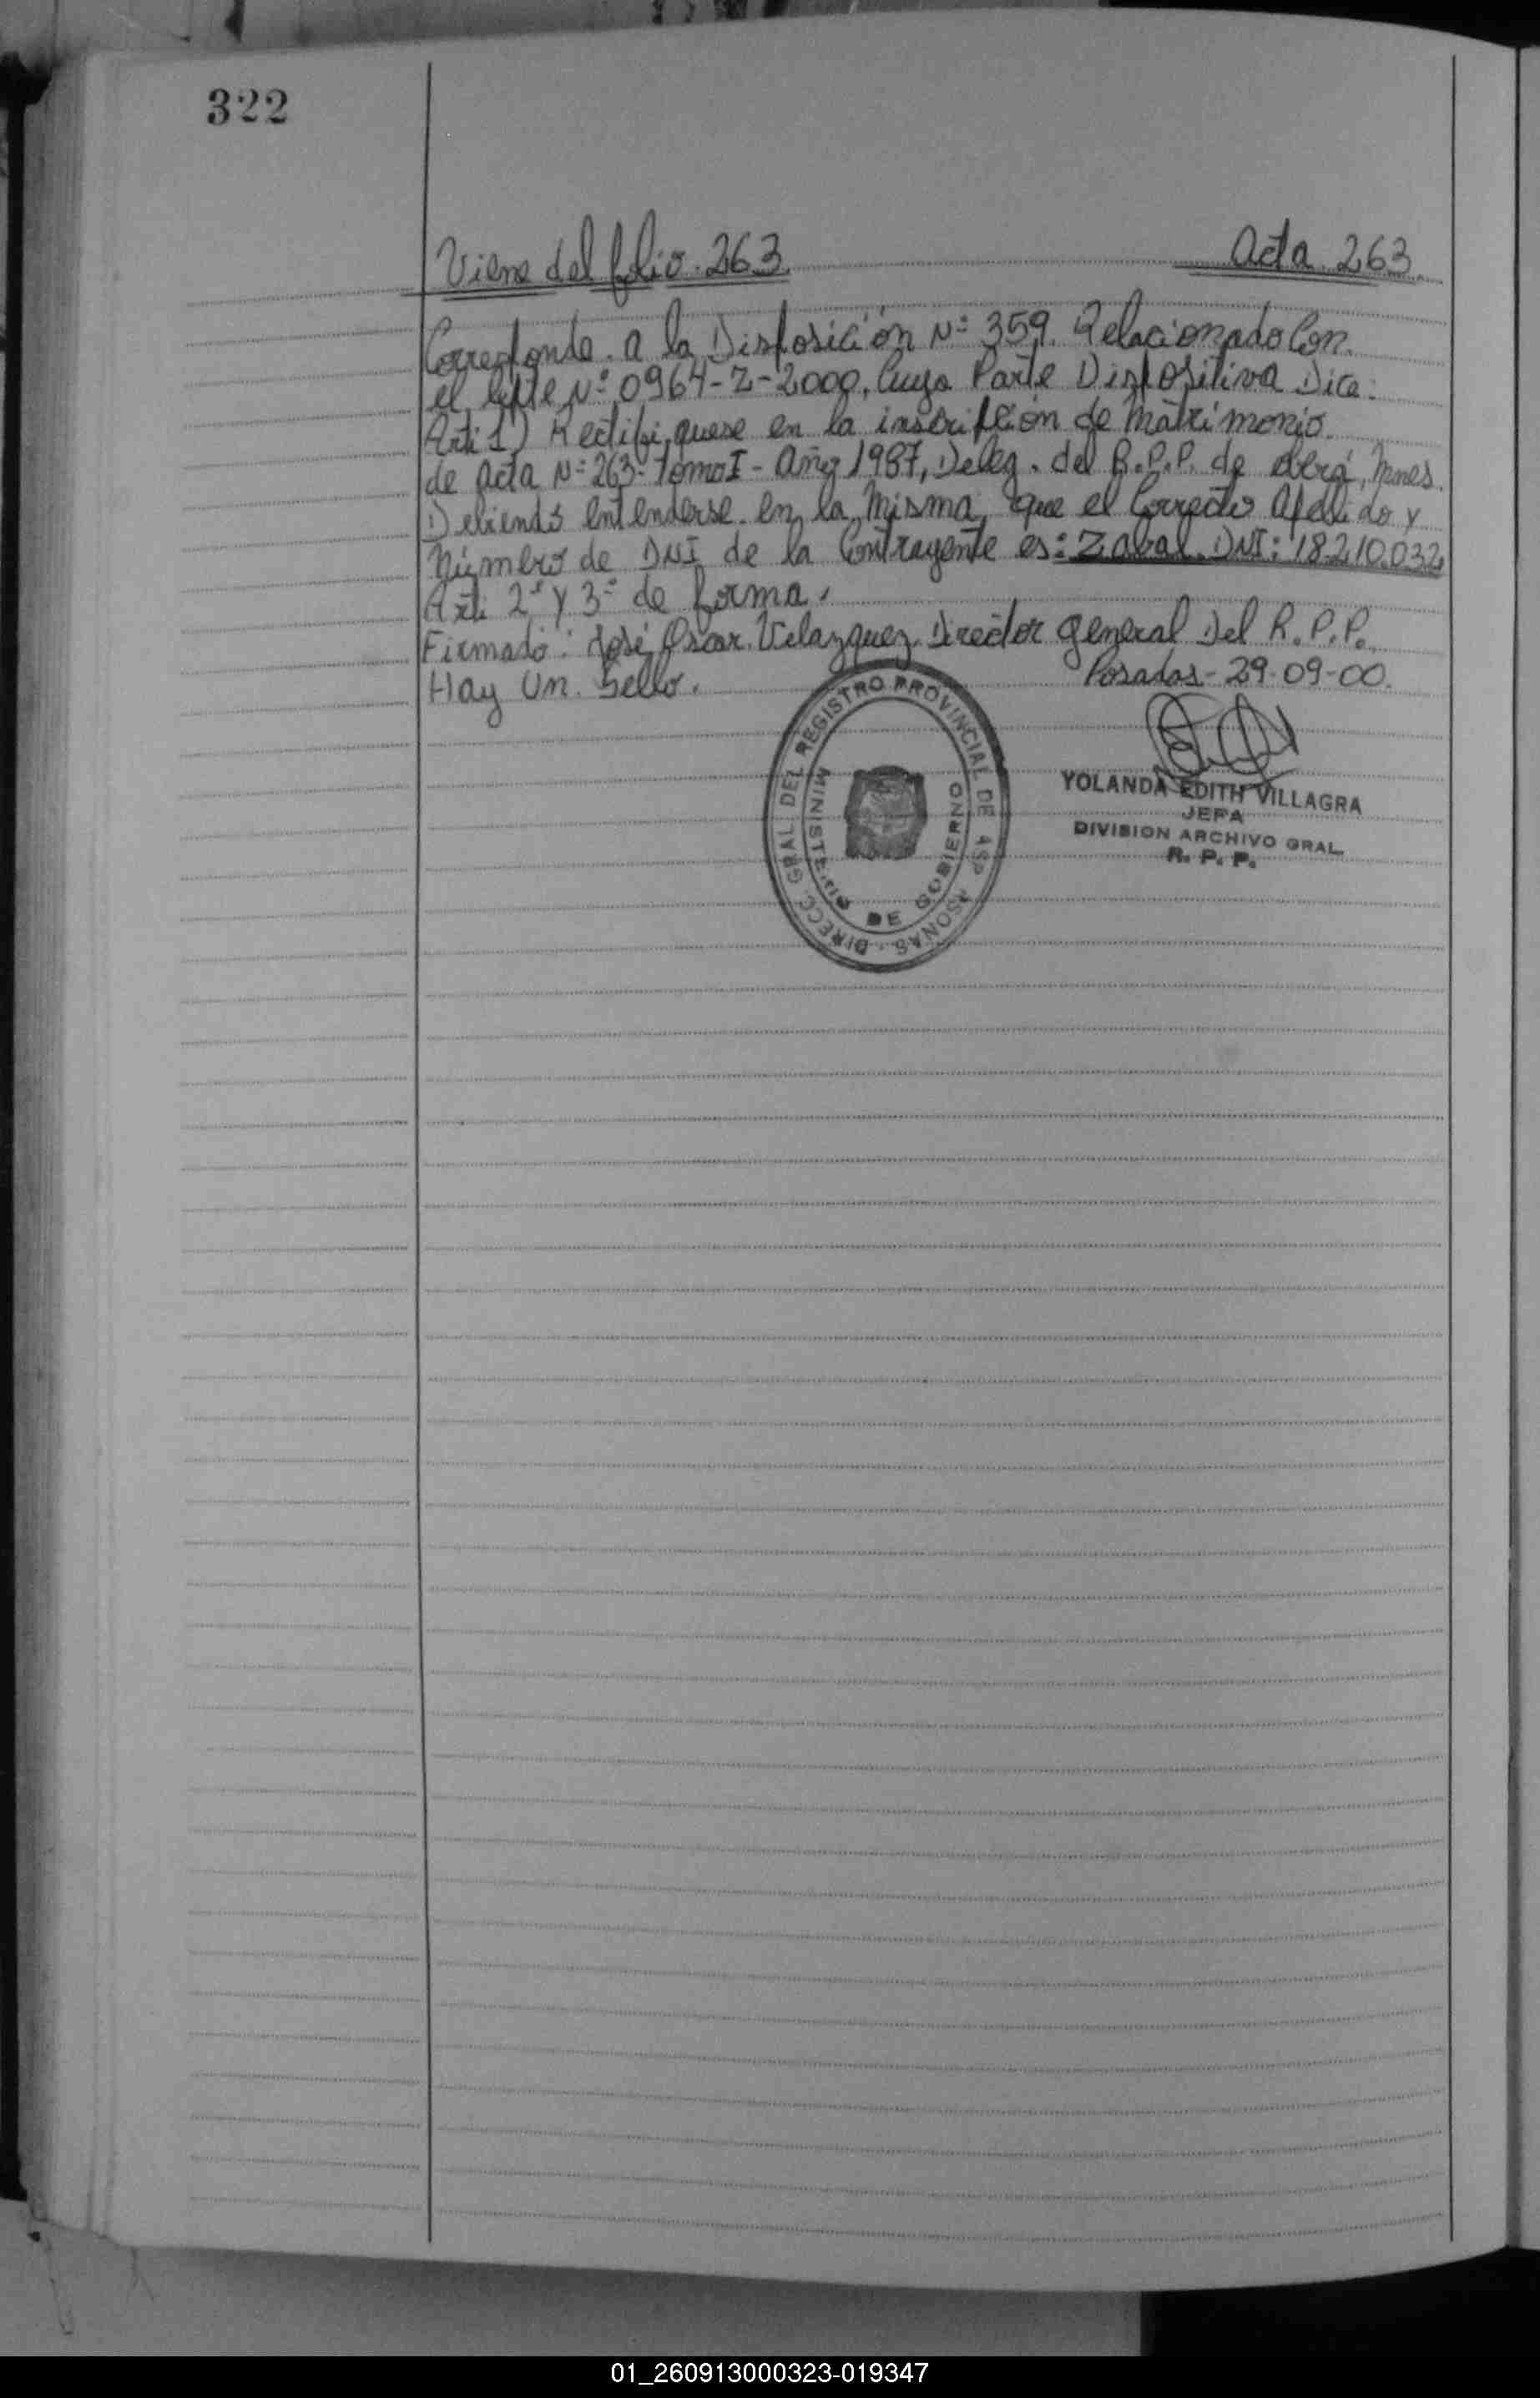 322
Viene del folio. 263. Acta. 263.
Corresponde. a la Disposición N° 359. Relacionado Con.
el Expte N° 0964-Z-2000, Cuya Parte Dispositiva Dice:
Art: 1) Rectifiquese en la inscripción de Matrimonio.
de Acta N° 263- Tomo I - Año 1987, Deleg. del R.P.P. de Oberá, Mnes.
Debiendo entenderse. en la Misma, que el Correcto Apellido y
Número de DNI de la Contrayente es: Zabal. DNI: 18.210.032
Art: 2° y 3° de forma.
Firmado: José Oscar. Velazquez. Director General Del R.P.P.
Hay Un. Sello. Posadas- 29-09-00.
DIRECC. GRAL. DEL REGISTRO PROVINCIAL DE AS P. RSONAS.
MINISTERIO DE GOBIERNO
YOLANDA EDITH VILLAGRA
JEFA
DIVISION ARCHIVO GRAL.
R. P. P.
01_260913000323-019347